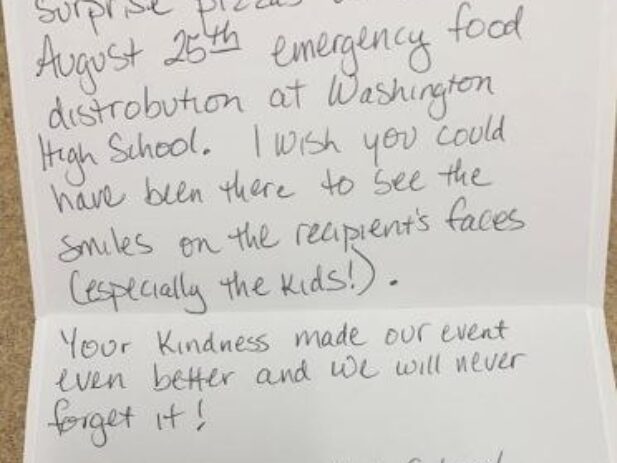 surprise pizzas
August 25th emergency food
distrobution at Washington
High School. I wish you could
have been there to see the
smiles on the recipient's faces
(especially the kids!).
Your kindness made our event
even better and we will never
forget it!